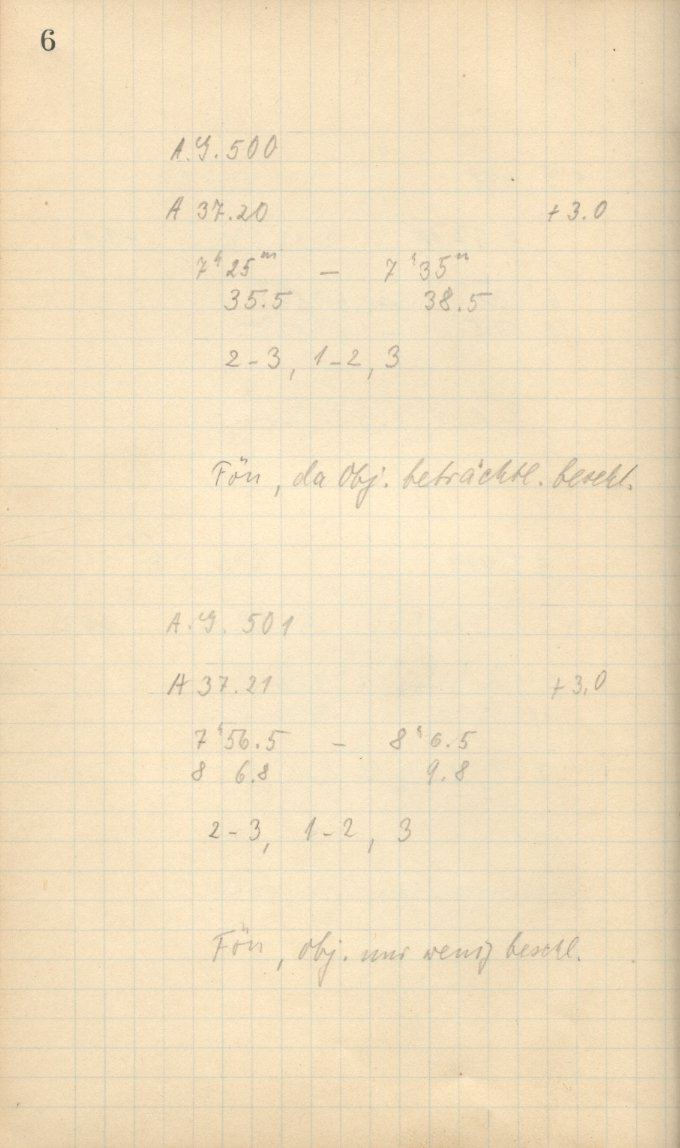 6
A.G. 500
A 37.20 +3.0
7ʰ25ᵐ – 7ʰ35ᵐ
35.5 38.5
2-3, 1-2, 3
Fön, da Obj. beträchtl. beschl.
A.G. 501
A 37.21 +3.0
7ʰ56.5 – 8ʰ6.5
8 6.8 9.8
2-3, 1-2, 3
Fön, Obj. nur wenig beschl.